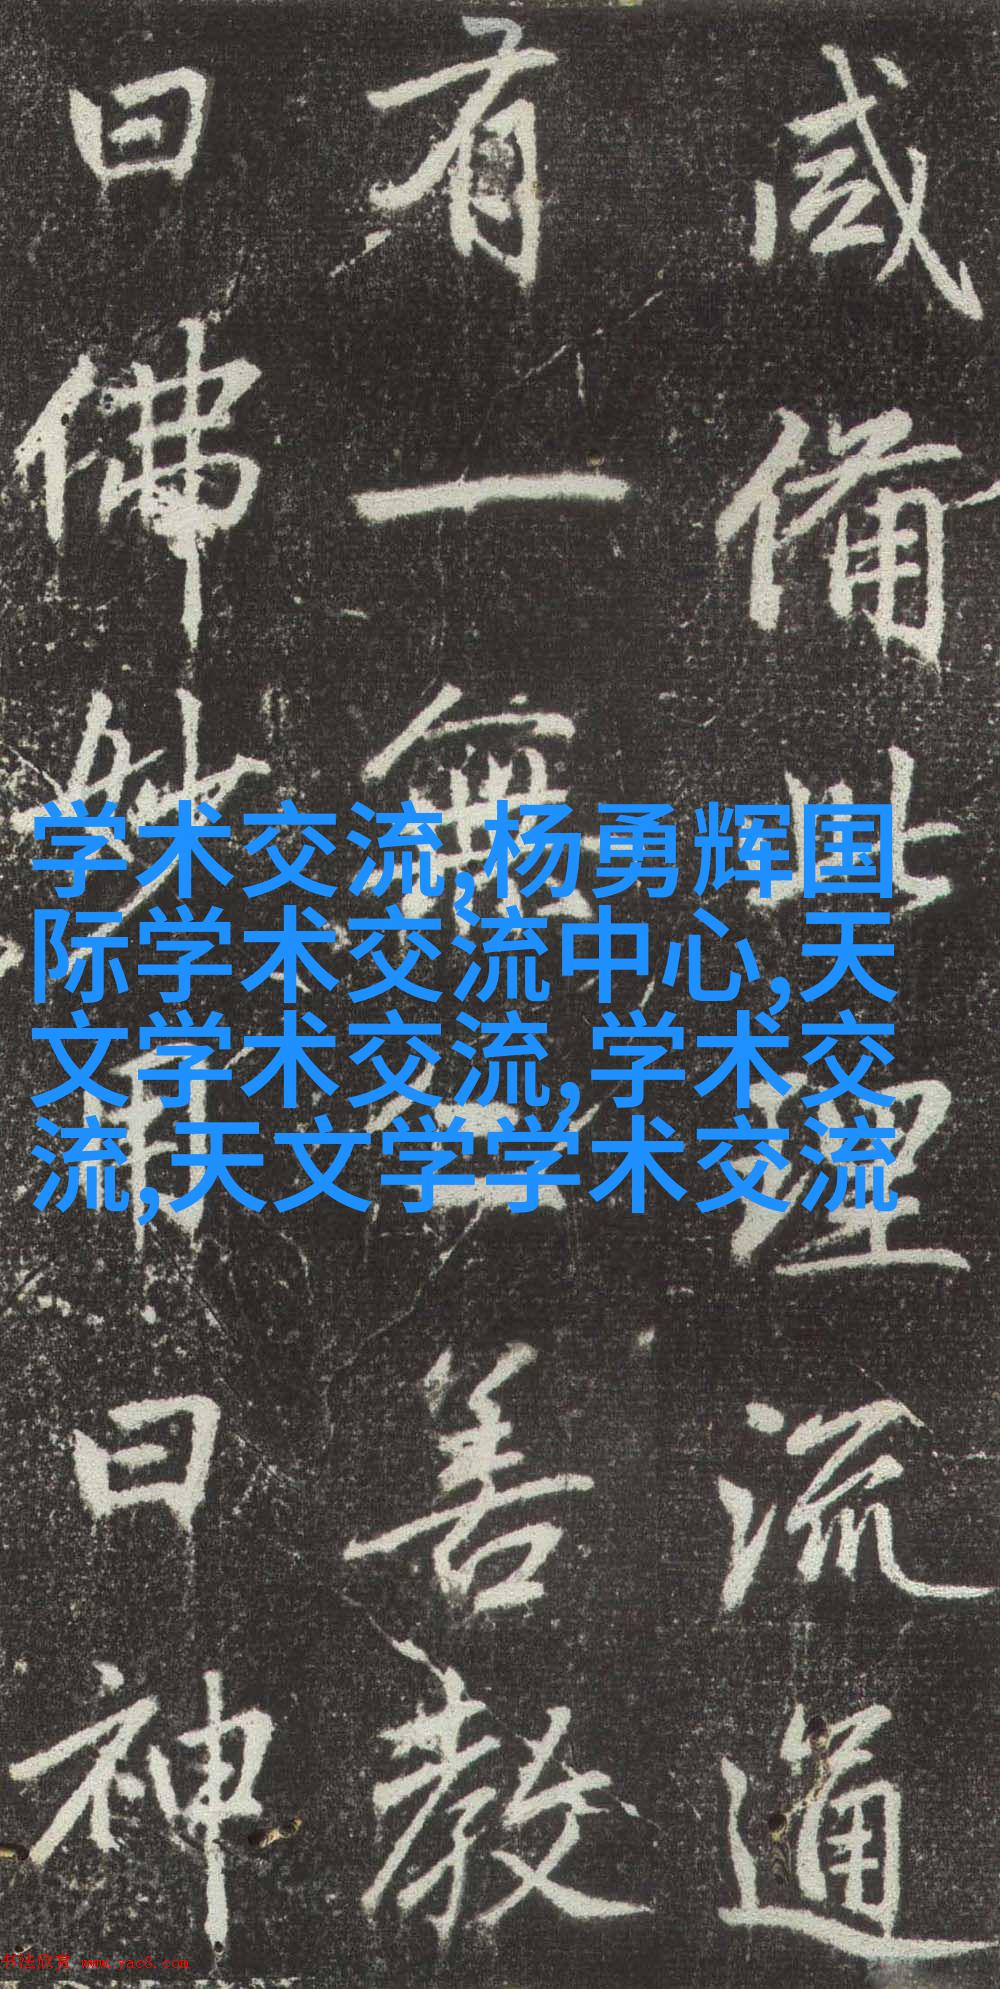 咸備此理流通
有一無二善教
曰佛妙用曰神
学术交流,杨勇辉国
际学术交流中心,天
文学术交流,学术交
流,天文学学术交流
书法欣赏 www.yac8.com